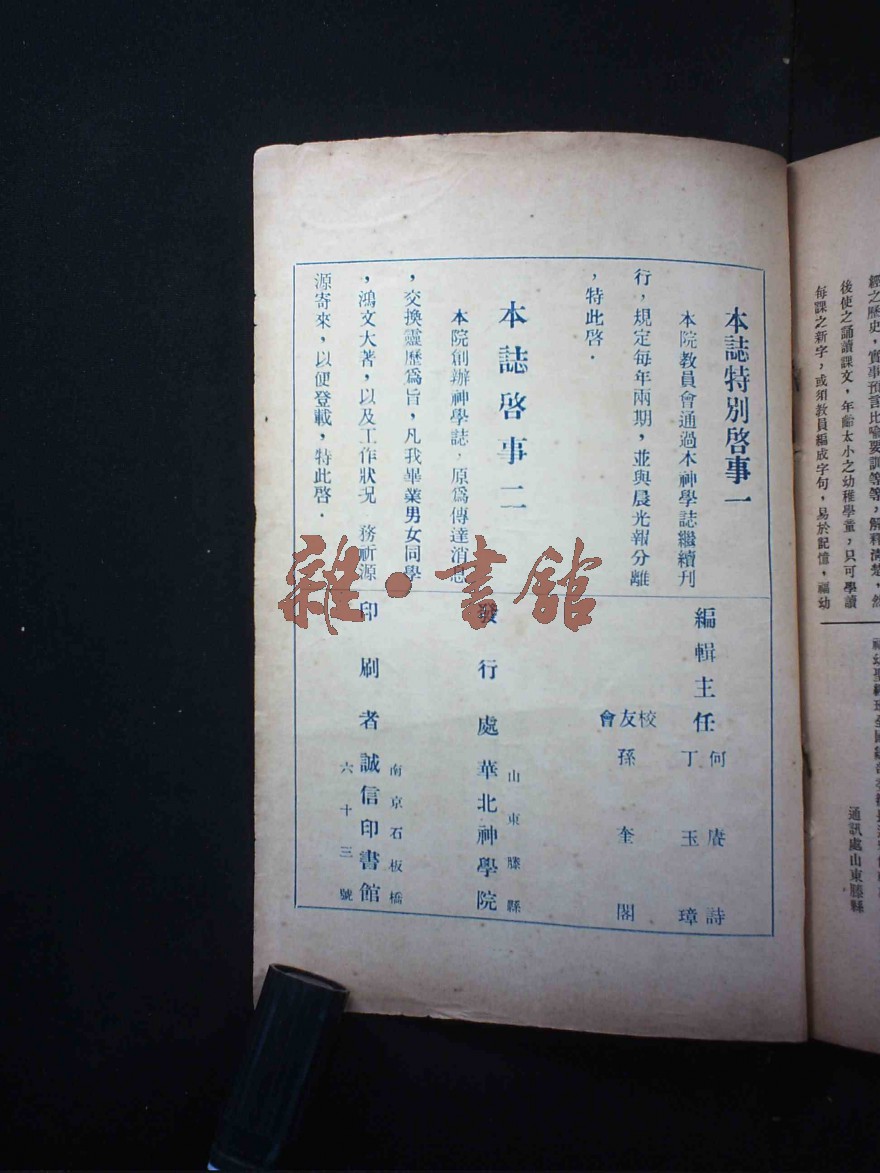 本誌特別啓事一
本院教員會通過本神學誌繼續刊
行，規定每年兩期，並與晨光報分離
，特此啓．
本誌啓事二
本院創辦神學誌，原爲傳達消息
，交換靈歷爲旨，凡我畢業男女同學
，鴻文大著，以及工作狀况　務祈源
源寄來，以便登載，特此啓．
編輯主任
何賡詩
丁玉璋
校友會
孫奎閣
發行處
山東滕縣
華北神學院
印刷者
南京石板橋
誠信印書館
六十三號
雜·書館
經之歷史，實事預言比喻要訓等等，解釋清楚，然
後使之誦讀課文，年齡太小之幼稚學童，只可學讀
每課之新字，或須教員編成字句，易於記憶，福幼
通訊處山東滕縣